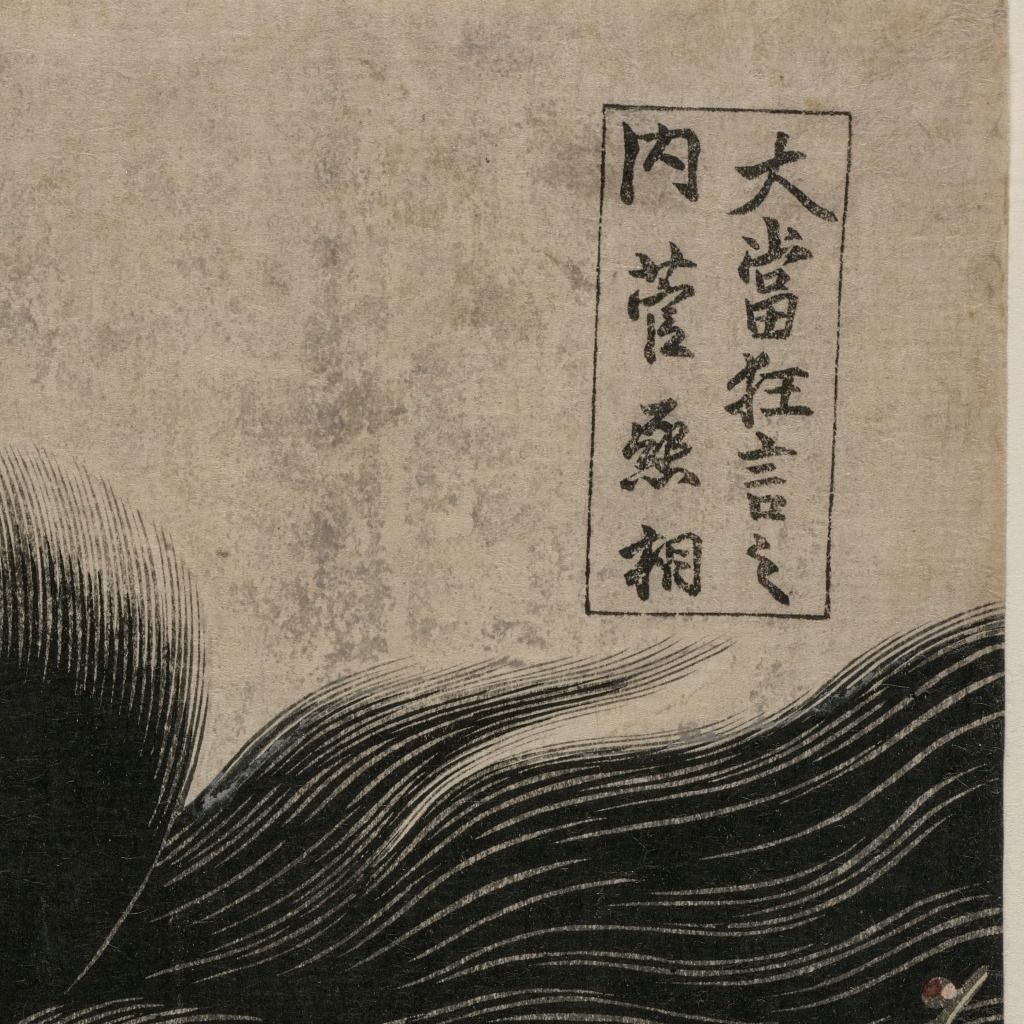 大當狂言之
内菅烝相